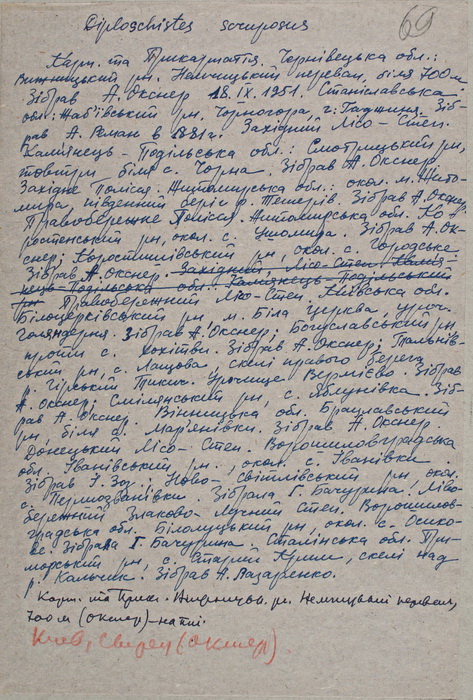 Diploschistes scruposus
69
Карп. та Прикарпаття. Чернівецька обл.:
Вижницький рн. Немчицький перевал, біля 700 м
Зібрав А. Окснер 18.IX.1951. Станіславська
обл. Жаб'ївський рн. Чорногора, г. Гаджина. Зіб-
рав А. Реман в 1881 г. Західний Лісо-Степ.
Кам'янець-Подільська обл.: Смотрицький рн,
товтри біля с. Чорна. Зібрав А. Окснер.
Західне Полісся. Житомирська обл.: окол. м. Жито-
мира, південний беріг р. Тетерів. Зібрав А. Окснер.
Правобережне Полісся. Житомирська обл. Ко-
ростенський рн, окол. с. Ушомира. Зібрав А. Ок-
снер; Коростишівський рн, окол. с. Городське
Зібрав А. Окснер. Західний Лісо-Степ Кам'я-
нець-Подільська обл. Кам'янець-Подільський
рн Правобережний Лісо-Степ. Київська обл.
Білоцерківський рн, м. Біла Церква, уроч.
Голендерня. Зібрав А. Окснер; Богуславський рн
проти с. Хохітви. Зібрав А. Окснер; Тальнів-
ський рн, с. Лащова, скелі правого берега
р. Гірський Тікич. Урочище Зібрав
А. Окснер; Смілянський рн, с. Яблунівка. Зіб-
рав А. Окснер. Вінницька обл. Брацлавський
рн, біля с. Мар'янівки. Зібрав А. Окснер.
Донецький Лісо-Степ. Ворошиловградська
обл. Іванівський рн., окол. с. Іванівки
Зібрав Ново-Світлівський рн, окол.
с. Первозванівки. Зібрала Г. Бачурина. Ліво-
бережний Злаково-Лучний Степ. Ворошилов-
градська обл. Біловуцький рн, окол. с. Осико-
ве. Зібрала Г. Бачурина. Сталінська обл. При-
морський рн, с. Старий Крим, скелі над
р. Кальчик. Зібрав А. Лазаренко.
Карп. та Прик. рн. Немчицький перевал,
700 м (Окснер) -
Киев, (Окснер).